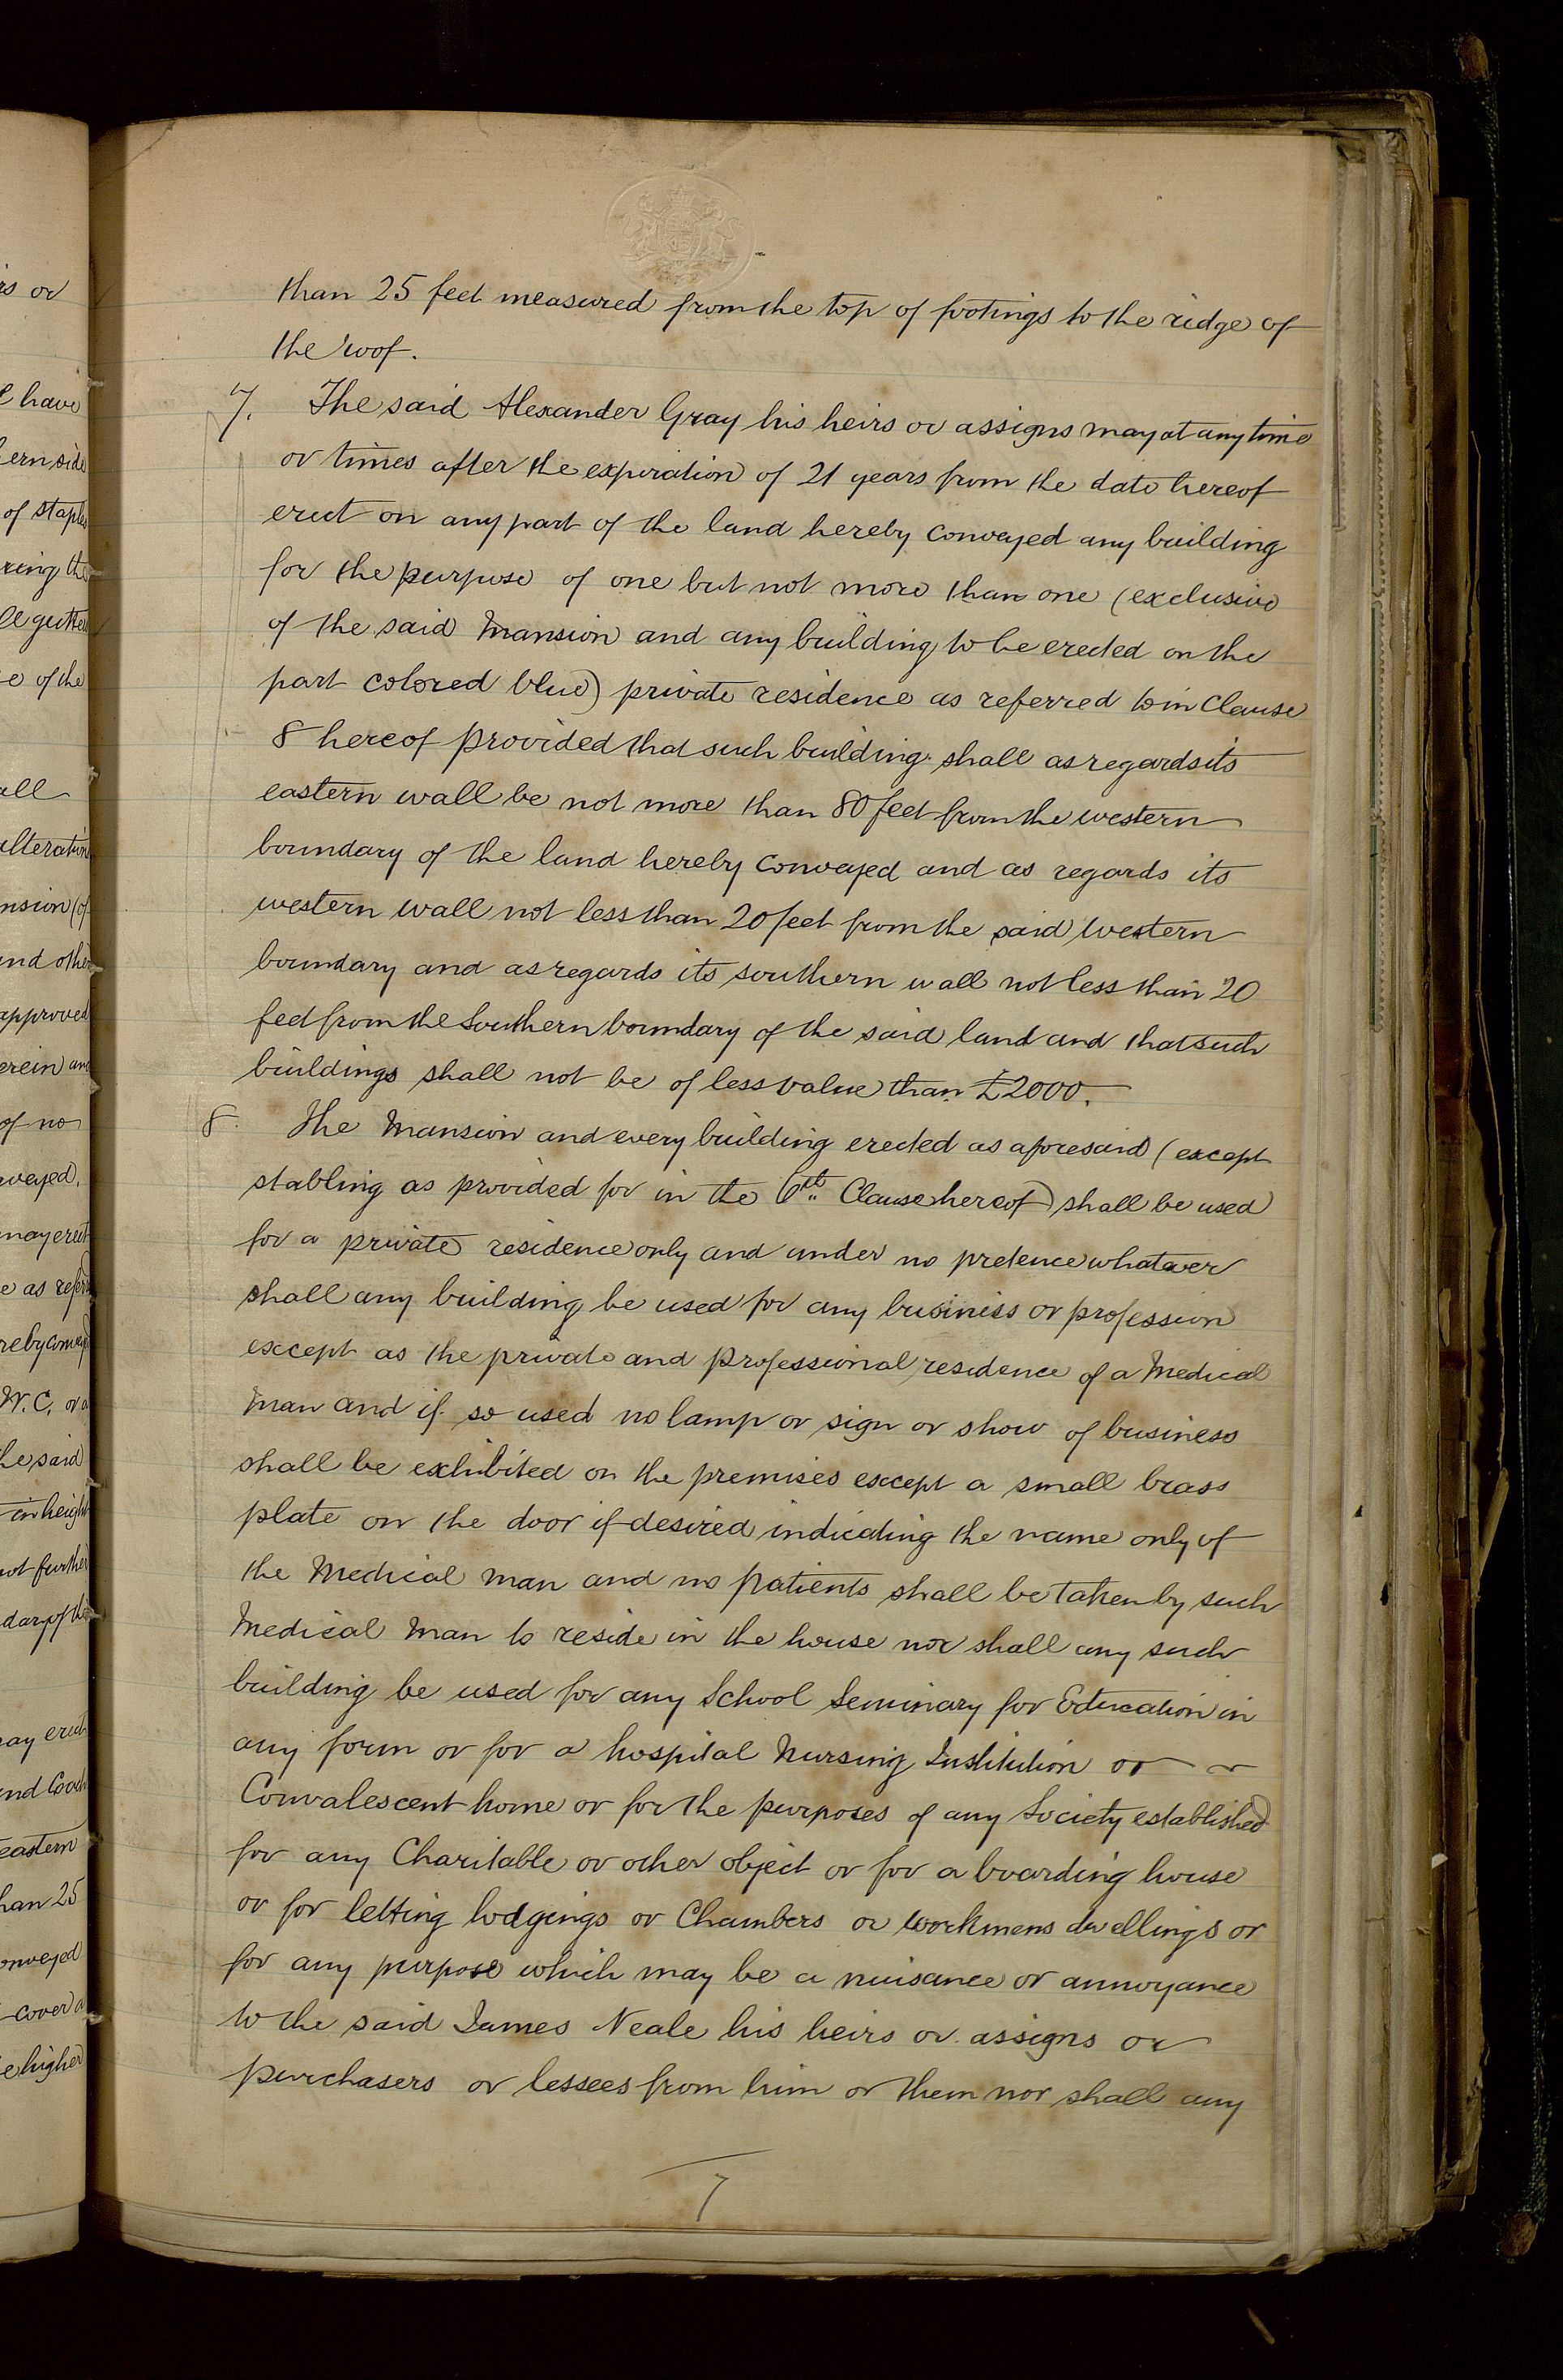 than 25 feet measured from the top of footings to the ridge of
the roof.
7. The said Alexander Gray his heirs or assigns may at any time
or times after the expiration of 21 years from the date hereof
erect on any part of the land hereby conveyed any building
for the purpose of one but not more than one (exclusive
of the said Mansion and any building to be erected on the
part colored blue) private residence as referred to in Clause
8 hereof provided that such building shall as regards its
eastern wall be not more than 80 feet from the western
boundary of the land hereby conveyed and as regards its
western wall not less than 20 feet from the said western
boundary and as regards its southern wall not less than 20
feet from the Southern boundary of the said land and that such
buildings shall not be of less value than £2000.
8. The Mansion and every building erected as aforesaid (except
stabling as provided for in the 6th Clause hereof) shall be used
for a private residence only and under no pretence whatever
shall any building be used for any business or profession
except as the private and professional residence of a Medical
Man and if so used no lamp or sign or show of business
shall be exhibited on the premises except a small brass
plate on the door if desired indicating the name only of
the Medical man and no patients shall be taken by such
Medical Man to reside in the house nor shall any such
building be used for any School Seminary for Education in
any form or for a hospital Nursing Institution or
Convalescent home or for the purposes of any Society established
for any Charitable or other object or for a boarding house
or for letting lodgings or Chambers or workmens dwellings or
for any purpose which may be a nuisance or annoyance
to the said James Neale his heirs or assigns or
purchasers or lessees from him or them nor shall any
7